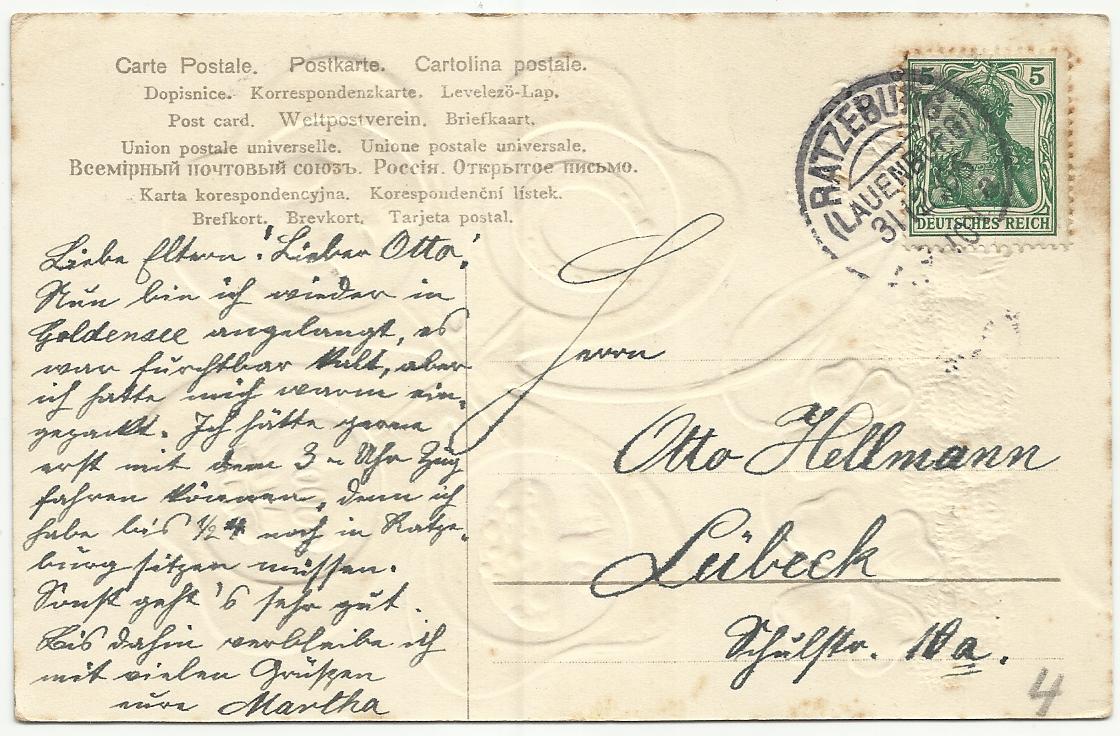 Carte Postale. Postkarte. Cartolina postale.
Dopisnice. Korrespondenzkarte. Levelező-Lap.
Post card. Weltpostverein. Briefkaart.
Union postale universelle. Unione postale universale.
Всемірный почтовый союзъ. Россія. Открытое письмо.
Karta korespondencyjna. Korespondenční lístek.
Brefkort. Brevkort. Tarjeta postal.
Liebe Eltern! Lieber Otto!
Nun bin ich wieder in
Goldensee angelangt, es
war furchtbar kalt, aber
ich hatte mich warm ein-
gepackt. Ich hätte gerne
erst mit dem 3-Uhr Zug
fahren können, denn ich
habe bis 1/2 4 noch in Ratze-
burg sitzen müssen.
Sonst geht's sehr gut.
Bis dahin verbleibe ich
mit vielen Grüßen
eure Martha
Herrn
Otto Hellmann
Lübeck
Schulstr. 10a.
4
RATZEBURG
(LAUENBURG)
31
5 5
DEUTSCHES REICH